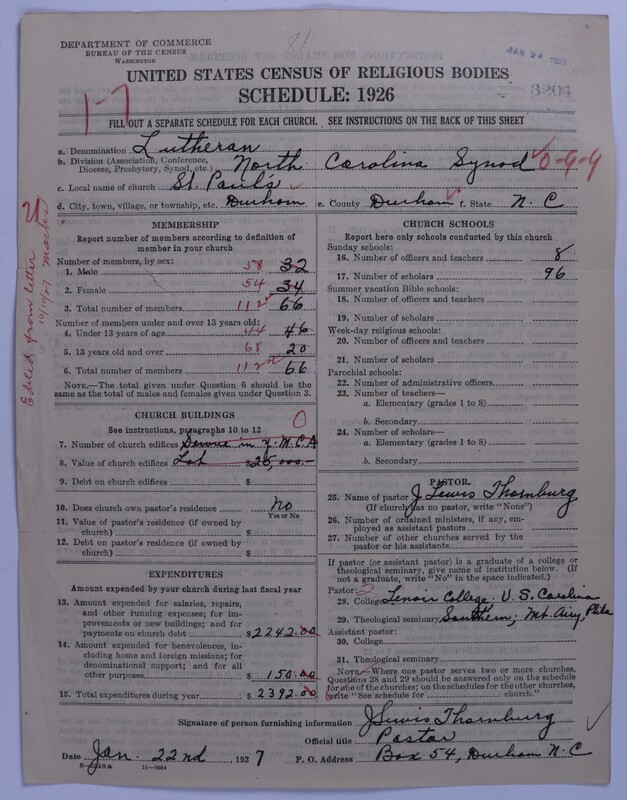 DEPARTMENT OF COMMERCE
BUREAU OF THE CENSUS
WASHINGTON
JAN 24 1927
UNITED STATES CENSUS OF RELIGIOUS BODIES
SCHEDULE: 1926
3204
1-7
FILL OUT A SEPARATE SCHEDULE FOR EACH CHURCH. SEE INSTRUCTIONS ON THE BACK OF THIS SHEET
a. Denomination Lutheran
b. Division (Association, Conference, Diocese, Presbytery, Synod, etc.) North Carolina Synod 0-9-9
c. Local name of church St. Paul's
d. City, town, village, or township, etc. Durham e. County Durham f. State N. C
Edited from letter
10/10/27
MEMBERSHIP
Report number of members according to definition of member in your church
Number of members, by sex:
1. Male 58 32
2. Female 54 34
3. Total number of members 112 66
Number of members under and over 13 years old:
4. Under 13 years of age 44 46
5. 13 years old and over 68 20
6. Total number of members 112 66
NOTE.—The total given under Question 6 should be the same as the total of males and females given under Question 3.
CHURCH BUILDINGS
See instructions, paragraphs 10 to 12
7. Number of church edifices Service in Y.M.C.A 0
8. Value of church edifices Lot $25,000.—
9. Debt on church edifices $
10. Does church own pastor's residence? No
Yes or No
11. Value of pastor's residence (if owned by church) $
12. Debt on pastor's residence (if owned by church) $
EXPENDITURES
Amount expended by your church during last fiscal year
13. Amount expended for salaries, repairs, and other running expenses; for improvements or new buildings; and for payments on church debt $2242.00
14. Amount expended for benevolences, including home and foreign missions; for denominational support; and for all other purposes $150.00
15. Total expenditures during year $2392.00
CHURCH SCHOOLS
Report here only schools conducted by this church
Sunday schools:
16. Number of officers and teachers 8
17. Number of scholars 96
Summer vacation Bible schools:
18. Number of officers and teachers
19. Number of scholars
Week-day religious schools:
20. Number of officers and teachers
21. Number of scholars
Parochial schools:
22. Number of administrative officers
23. Number of teachers—
a. Elementary (grades 1 to 8)
b. Secondary
24. Number of scholars—
a. Elementary (grades 1 to 8)
b. Secondary
PASTOR
25. Name of pastor J Lewis Thornburg
(If church has no pastor, write "None")
26. Number of ordained ministers, if any, employed as assistant pastors
27. Number of other churches served by the pastor or his assistants
If pastor (or assistant pastor) is a graduate of a college or theological seminary, give name of institution below. (If not a graduate, write "No" in the space indicated.)
Pastor:
28. College Lenoir College. U. S. Carolina
29. Theological seminary Southern; Mt. Airy, Phila
Assistant pastor:
30. College
31. Theological seminary
NOTE.—Where one pastor serves two or more churches, Questions 28 and 29 should be answered only on the schedule for one of the churches; on the schedules for the other churches, write "See schedule for church."
Signature of person furnishing information J Lewis Thornburg
Official title Pastor
Date Jan. 22nd, 1927 P. O. Address Box 54, Durham N. C
11—9084